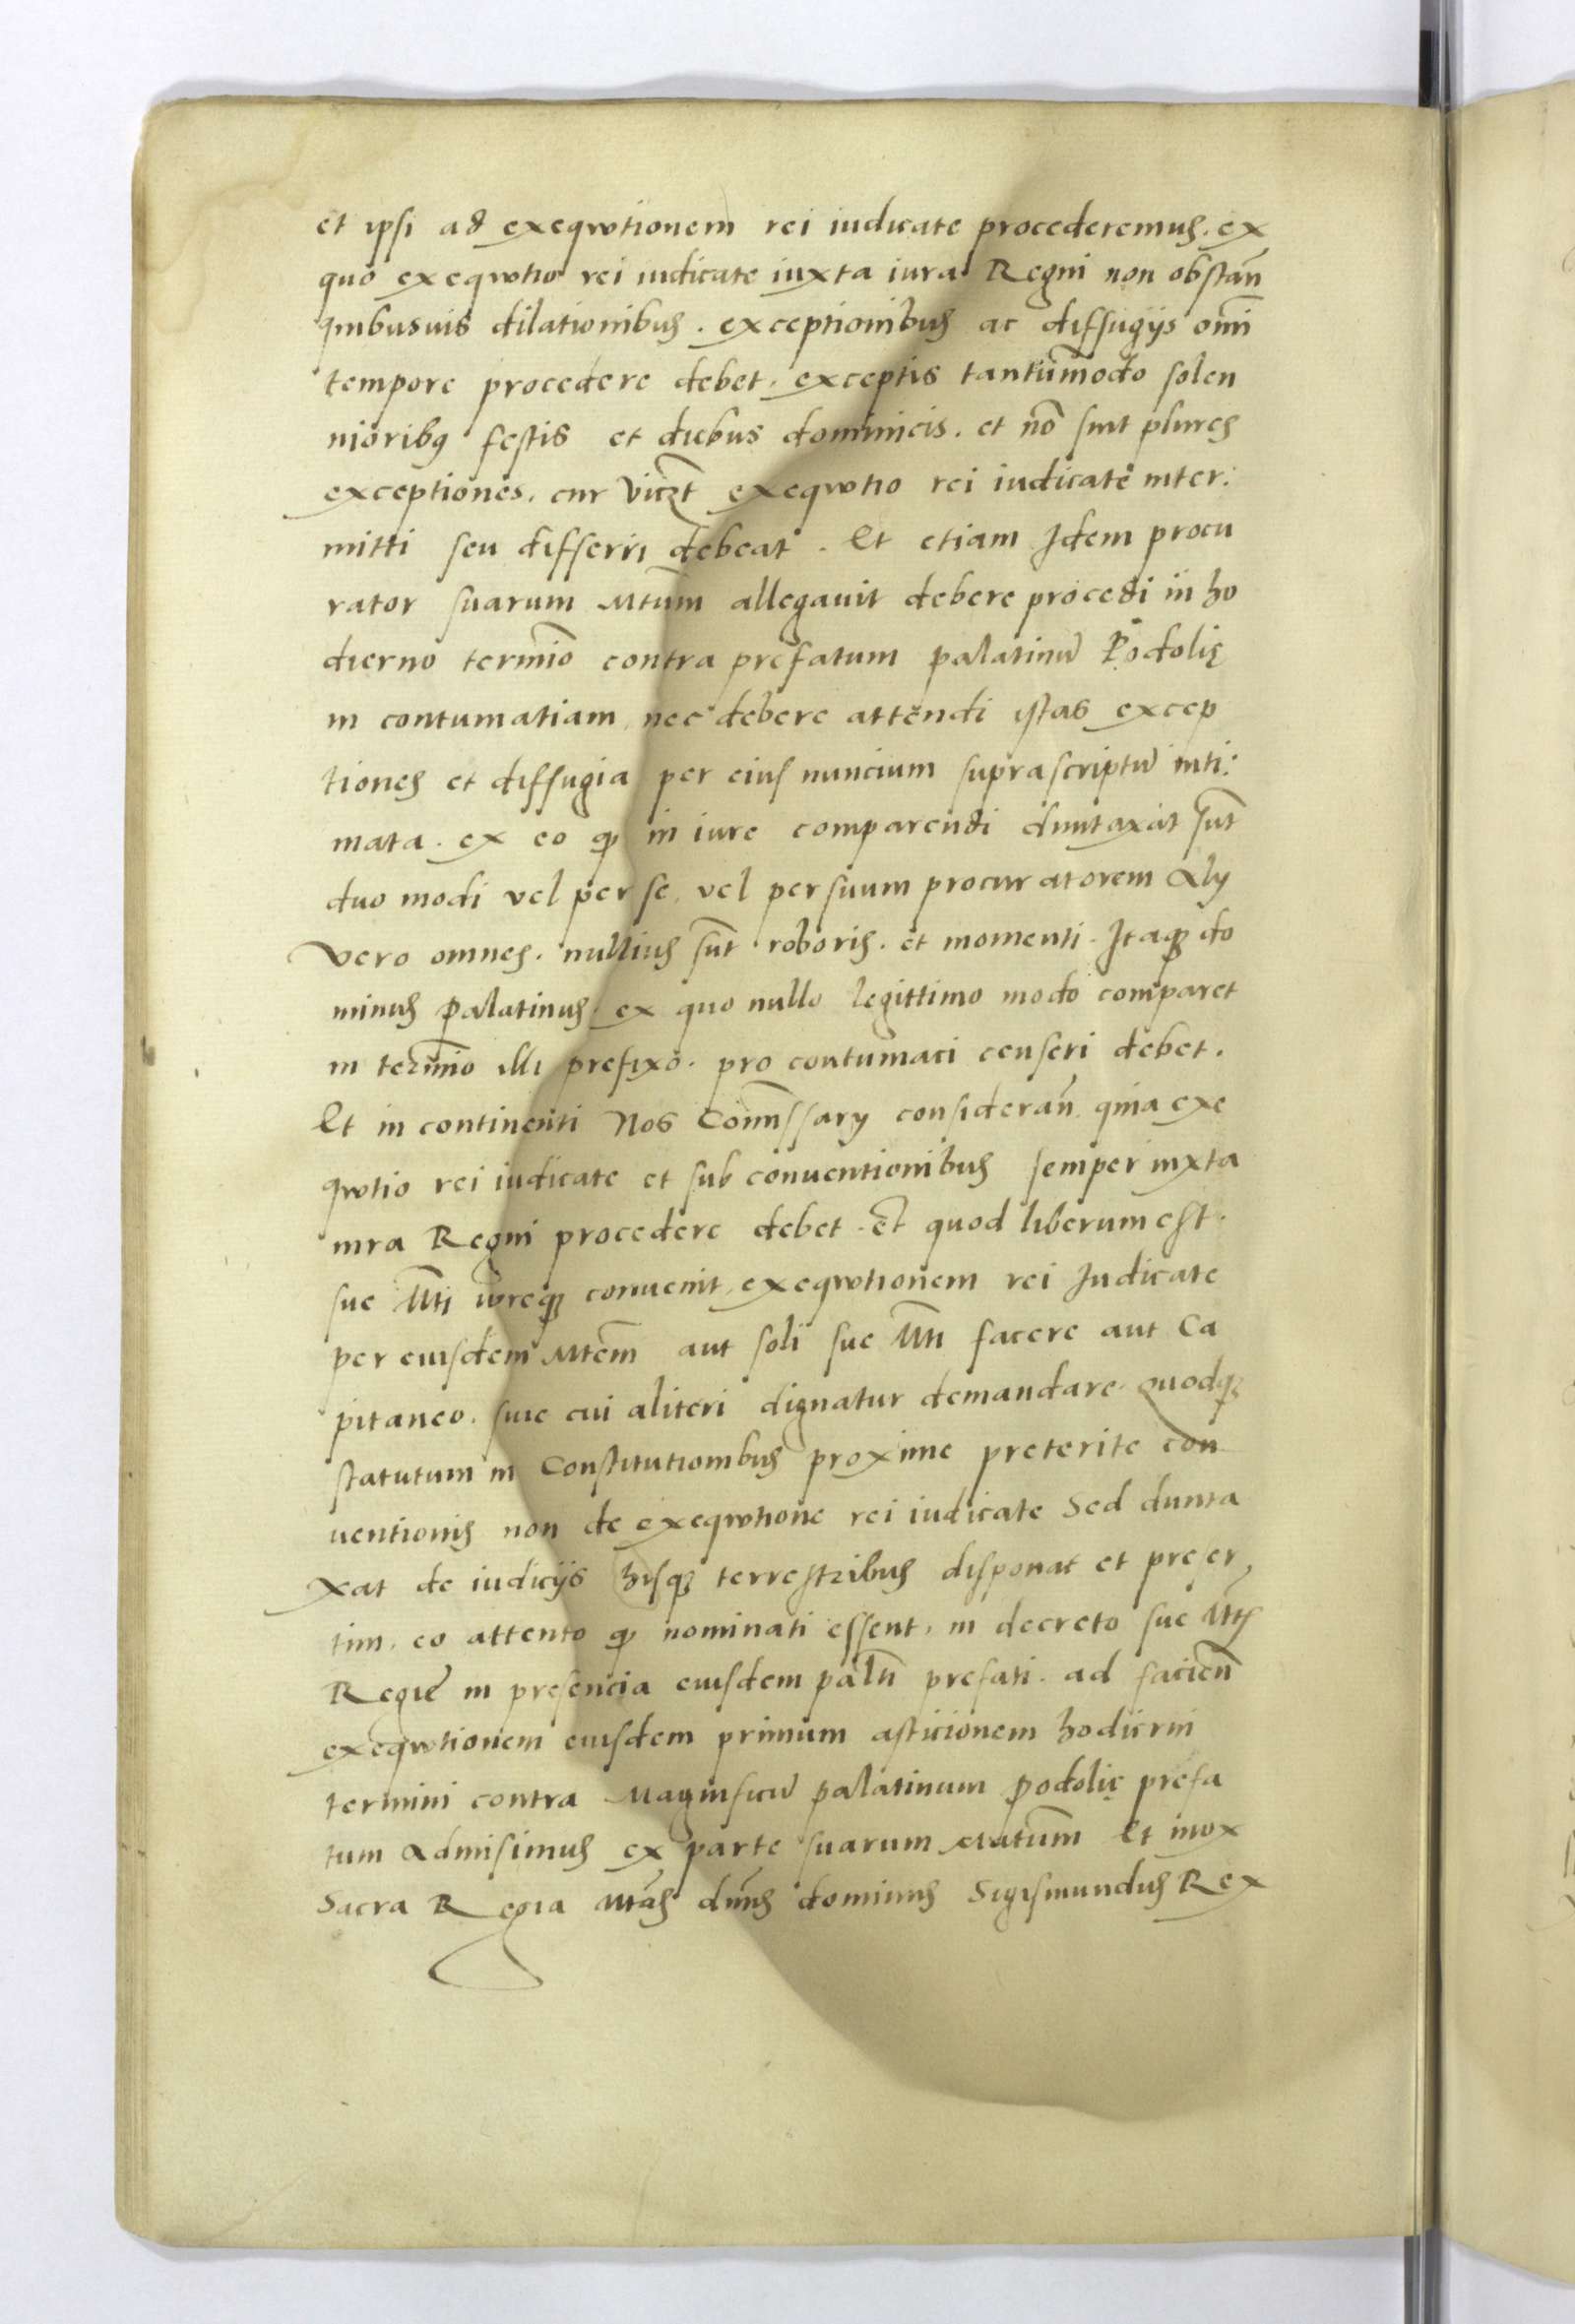 et ipsi ad exeqwtionem rei iudicate procederemus. ex
quo exeqwtio rei iudicate iuxta iura Regni non obstan̄
quibusuis dilationibus. exceptionibus ac diffugijs om̄i
tempore procedere debet. exceptis tantum̄odo solen
nioribꝫ festis et diebus dominicis. et nō sint plures
exceptiones. cur vicꝫt exeqwtio rei iudicate inter:
mitti seu differri debeat. Et etiam Idem procu
rator suarum Mtum̄ allegauit debere procedi in ho
dierno termīo contra prefatum palatinū Podolię
in contumatiam nec debere attendi istas excep
tiones et diffugia per eius nuncium suprascriptū inti:
mata. ex eo qꝫ in iure comparendi duntaxat sūt
duo modi vel per se, vel per suum procuratorem Alij
vero omnes. nullius sūt roboris. et momenti. Itaqꝫ do
minus Palatinus. ex quo nullo legittimo modo comparet
in termīo illi prefixo. pro contumaci censeri debet.
Et in continenti Nos Com̄issarij consideran̄ quia exe
qwtio rei iudicate et sub conuentionibus semper iuxta
iura Regni procedere debet. et quod liberum est.
sue Mti̅ iureqꝫ conuenit, exeqwtionem rei Iudicate
per eiusdem Mtem̄ aut soli sue Mti̅ facere aut Ca
pitaneo. siue cui aliteri dignatur demandare. quodqꝫ
statutum in Constitutionibus proxime preterite con
uentionis non de exeqwtione rei iudicate Sed dunta
xat de iudicijs hisqꝫ terrestribus disponat et preser,
tim. eo attento qꝫ nominati essent, in decreto sue Mtis̄
Regie in presencia eiusdem paltī prefati. ad facien̄
exeqwtionem eiusdem primum astitionem hodierni
termini contra Magnificū palatinum Podolię prefa
tum Admisimus ex parte suarum Matum̄ Et mox
Sacra Regia Mtās dn̄us dominus Sigismundus Rex